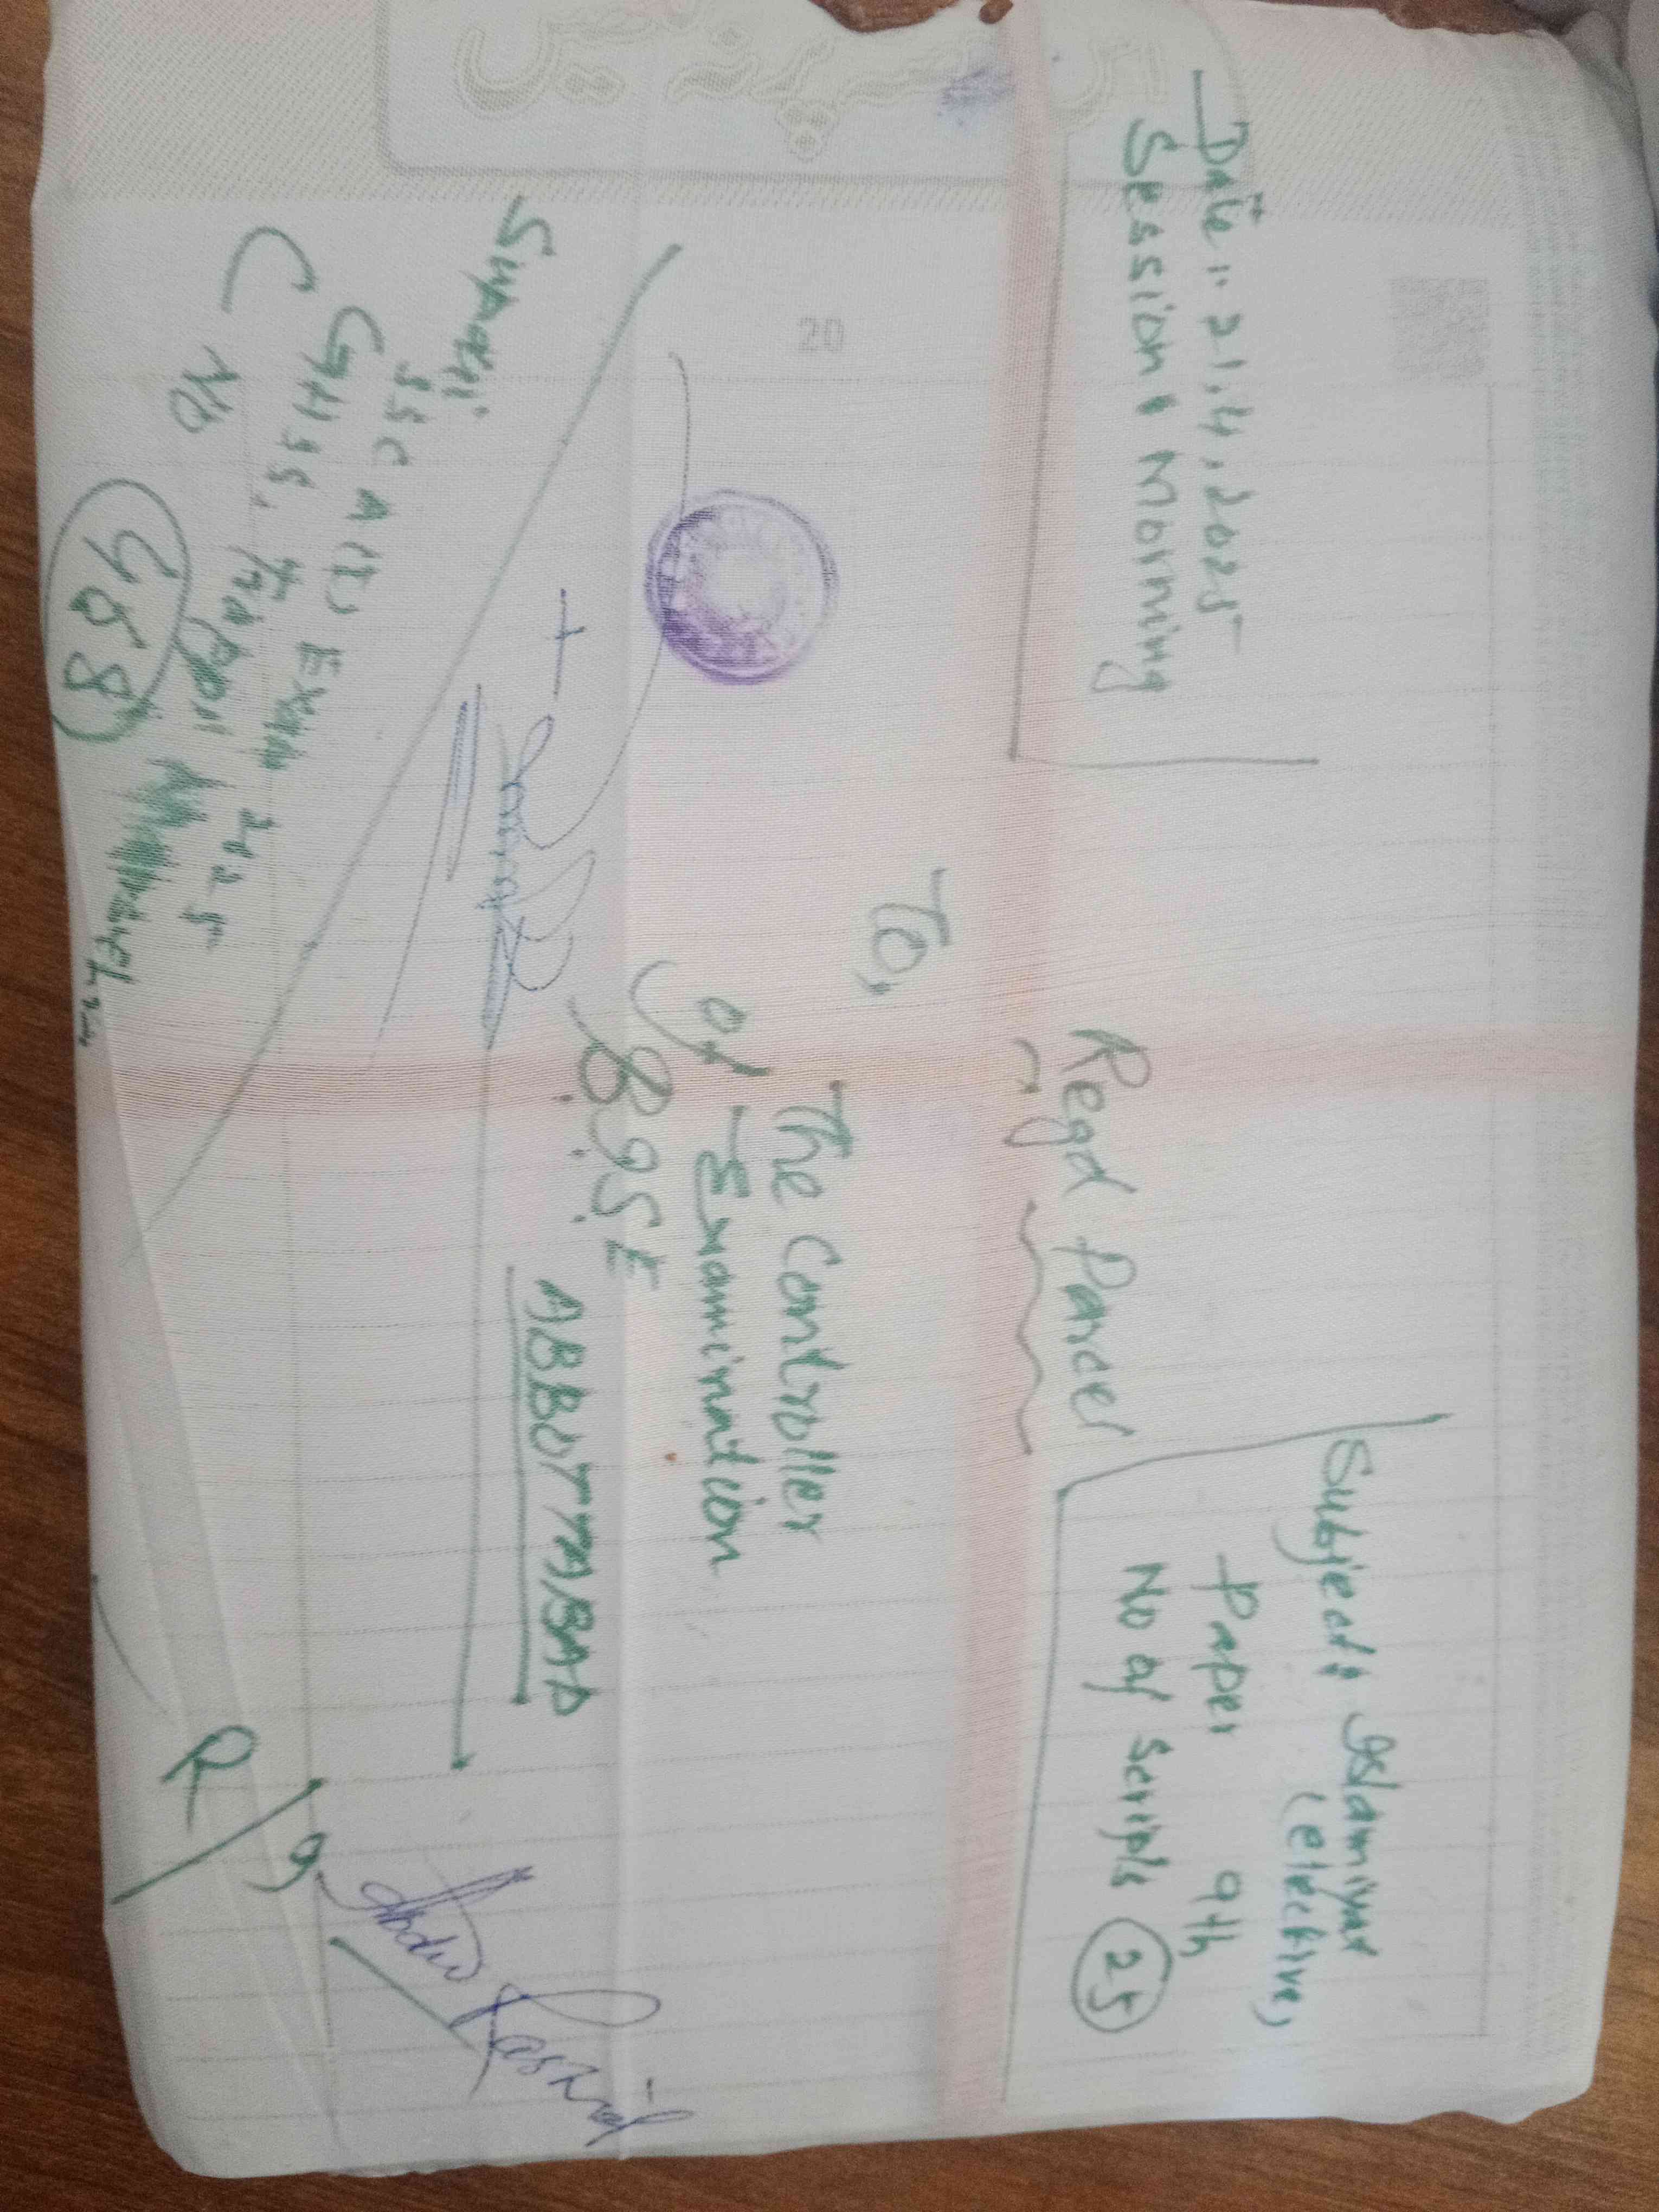 Date:- 21.4.2025
Session: Morning
Subject: Islamiyat
(elective)
Paper 9th
No of Scripts 25
Regd Parcel
To,
The Controller
Of Examination
BISE
ABBOTTABAD
20
SSC A(I) Exam 2025
GHSS,
C No 458
R/9
Abdul Rashid
اس حصہ پر نہ لکھیں